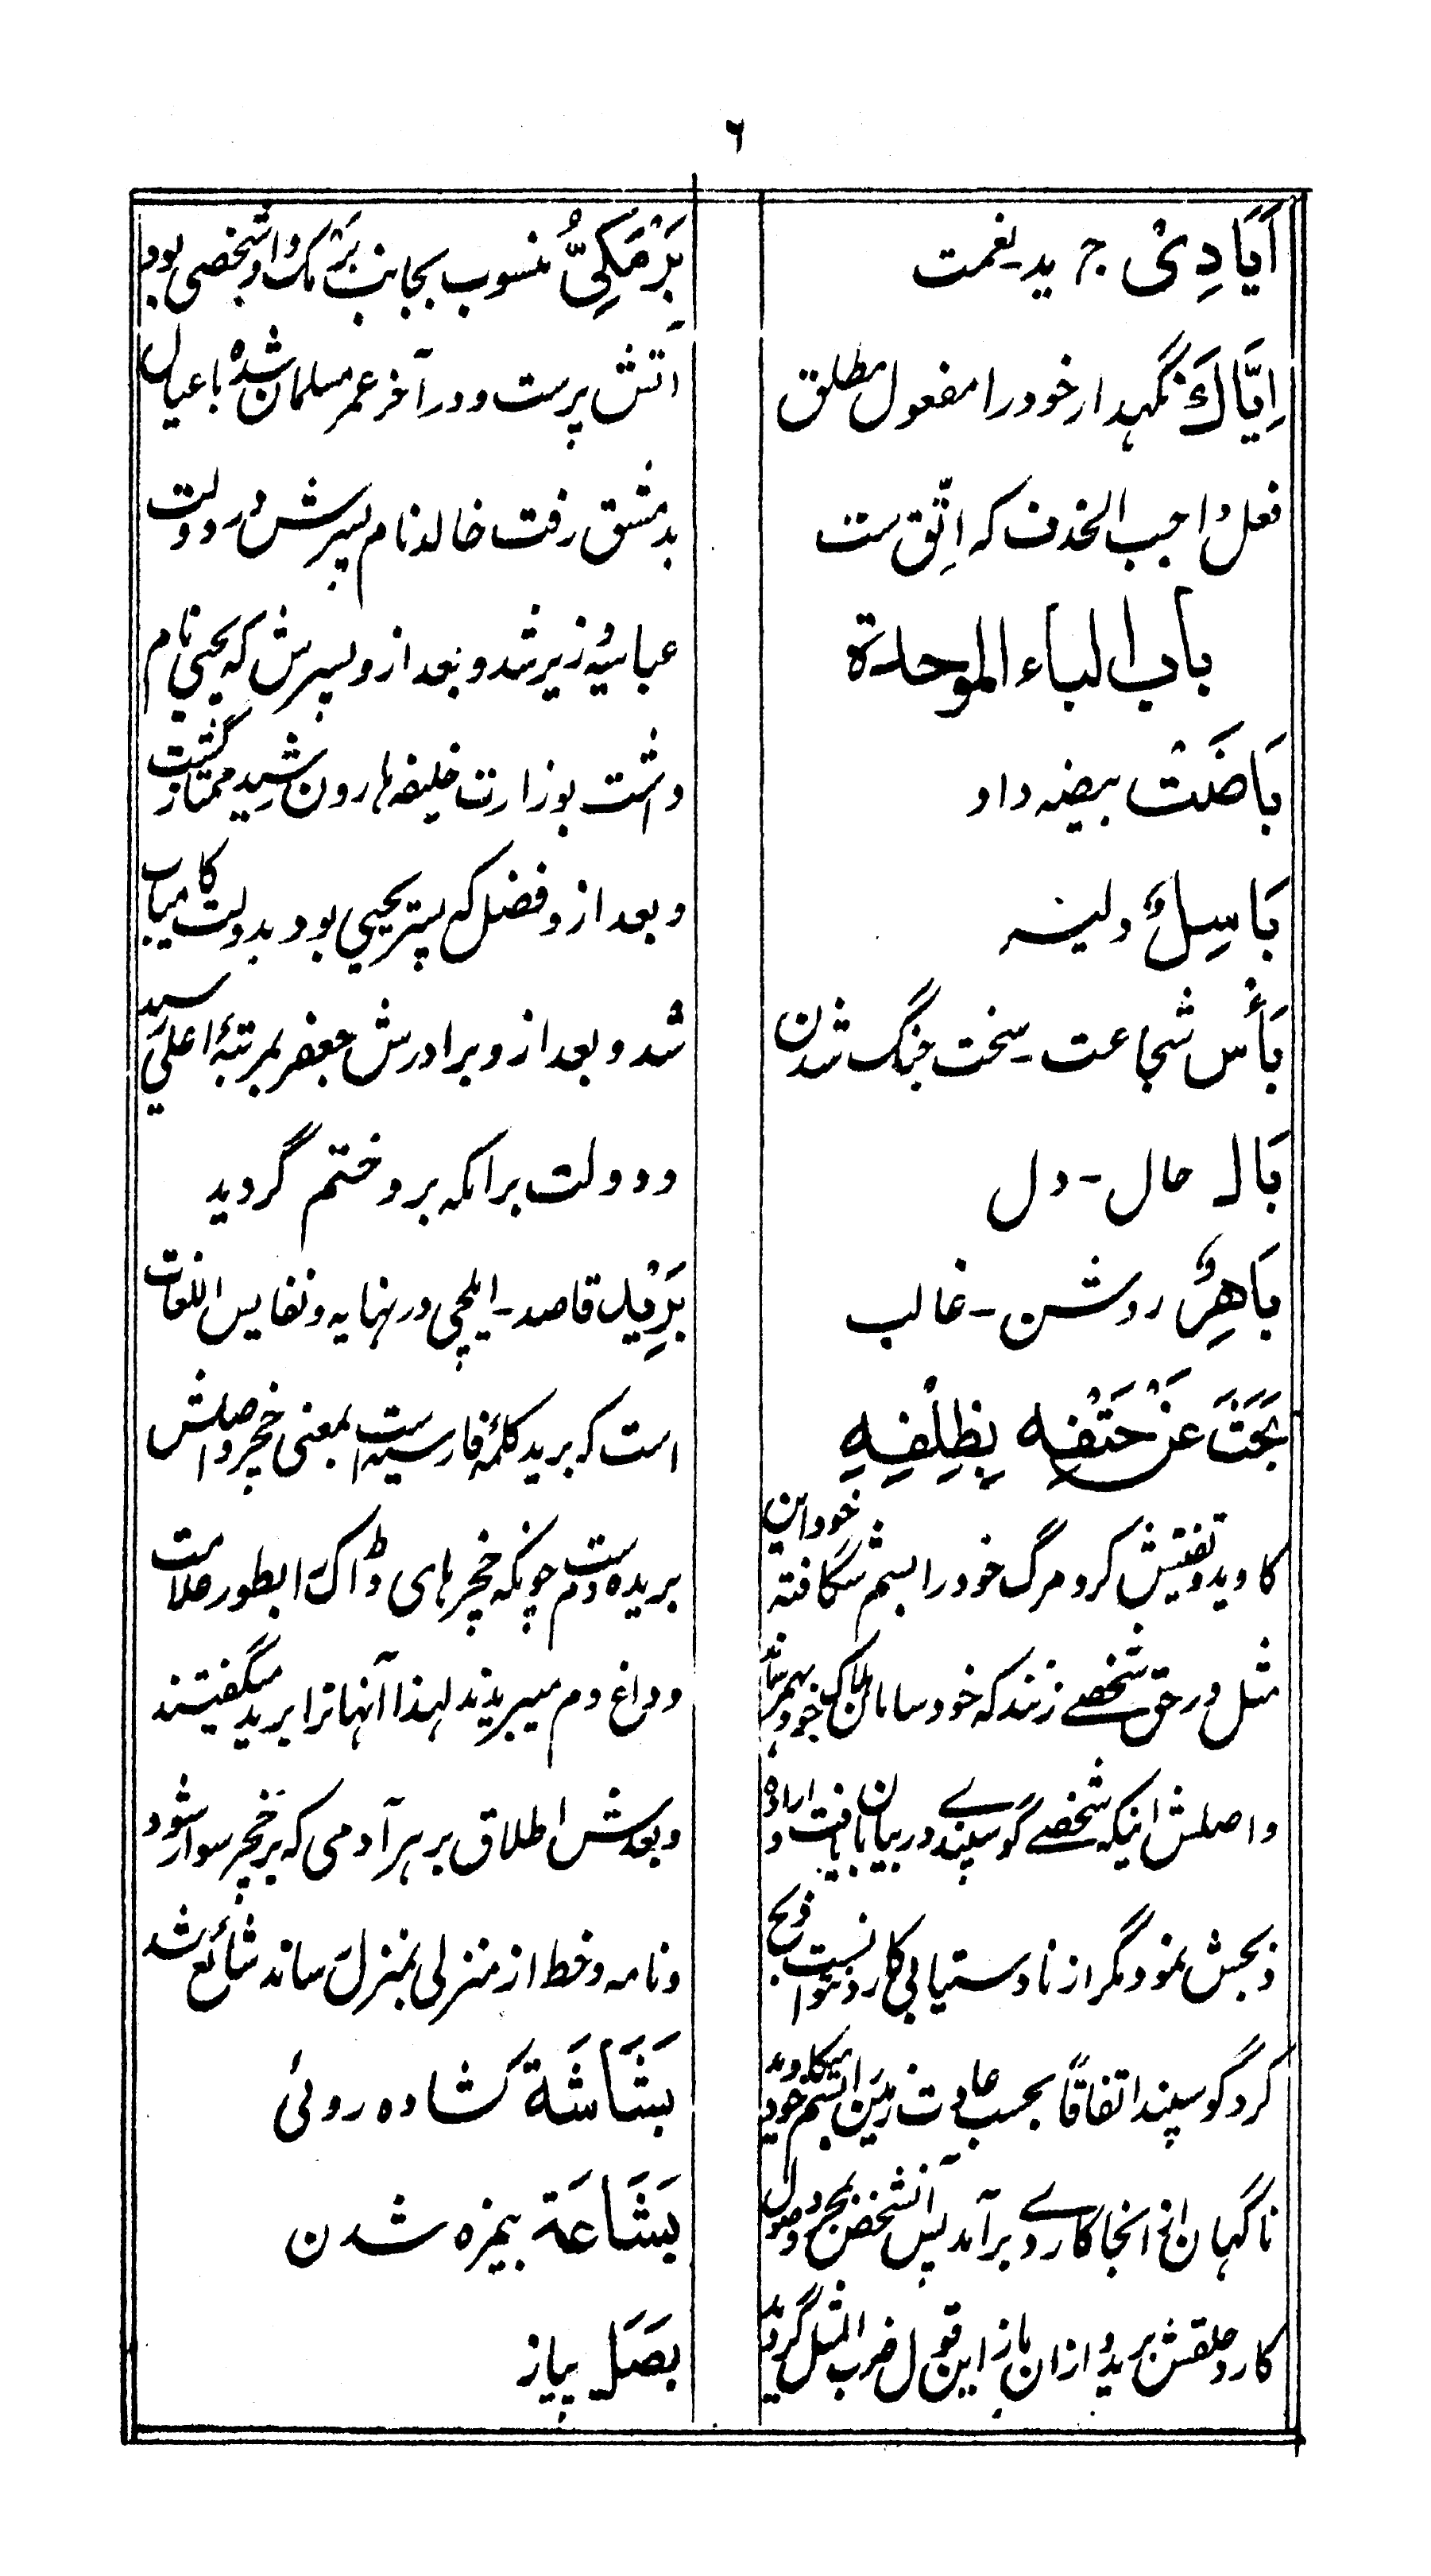 ٦
اَیَادِیْ جـ ید۔ نعمت
اِیَّاكَ نگہدار خود را مفعول مطلق
فعل واجب الحذف که اِتَّقِ ست
باب الباء الموحدة
بَاضَتْ بیضه داد
بَاسِلٌ دلیر
بَأْس شجاعت۔ سخت جنگ شدن
بَال حال۔ دل
بَاهِرٌ روشن۔ غالب
بَحَثَ عَنْ حَتْفِهٖ بِظِلْفِهٖ
کاوید و تفتیش کرد مرگ خود را بسم شگافته خود این
مثل در حق شخصے زنند که خود سامان هلاک خود بهم رساند
و اصلش اینکه شخصے گوسپندے در بیابان یافت و اراده
ذبحش نمود مگر از نادستیابی کارد نتوانست ذبح
کرد گوسپند اتفاقاً بحسب عادت زمین را بسم خود میکاوید
ناگهان از انجا کاردے بر آمد پس آنشخص بمجرد وصول
کارد حلقش برید و ازان باز این قول ضرب المثل گردید
بَرْمَكِیٌّ منسوب بجانب برمک و او شخصی بود
آتش پرست و در آخر عمر مسلمان شده با عیال
بدمشق رفت خالد نام پسرش در دولت
عباسیه وزیر شد و بعد ازو پسرش که یحیی نام
داشت بوزارت خلیفه هارون رشید ممتاز گشت
و بعد ازو فضل که پسر یحیی بود بدولت کامیاب
شد و بعد ازو برادرش جعفر بمرتبهٔ اعلی رسید
و دولت برامکه برو ختم گردید
بَرِیْد قاصد۔ ایلچی در نهایه و نفایس اللغات
است که برید کلمهٔ فارسیه است بمعنی خچر و اصلش
بریده دم ست چونکه خچرهای ڈاک را بطور علامت
و داغ دم میبریدند لهذا آنها را برید میگفتند
و بعدش اطلاق بر هر آدمی که بر خچر سوار شود
و نامه و خط از منزلی بمنزل رساند شائع شد
بَشَاشَة کشاده روئی
بَشَاعَة بیمزه شدن
بَصَل پیاز